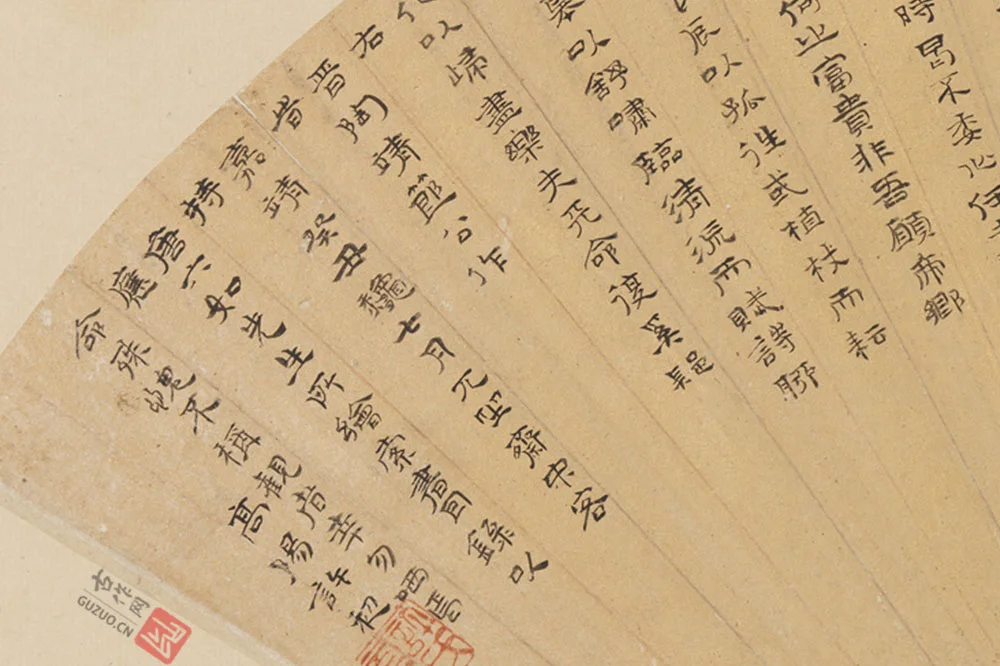 時曷不委心任
何之富貴非吾願帝鄉
辰以孤往或植杖而耘
皋以舒嘯臨清流而賦詩聊
化以歸盡樂夫天命復奚疑
右晋陶靖節公作
旹嘉靖癸丑穐七月兀坐齋中客
持唐六如先生所繪索書因錄以
應命殊愧不稱觀者幸勿哂焉
高陽許初
古作网
GUZUO.CN